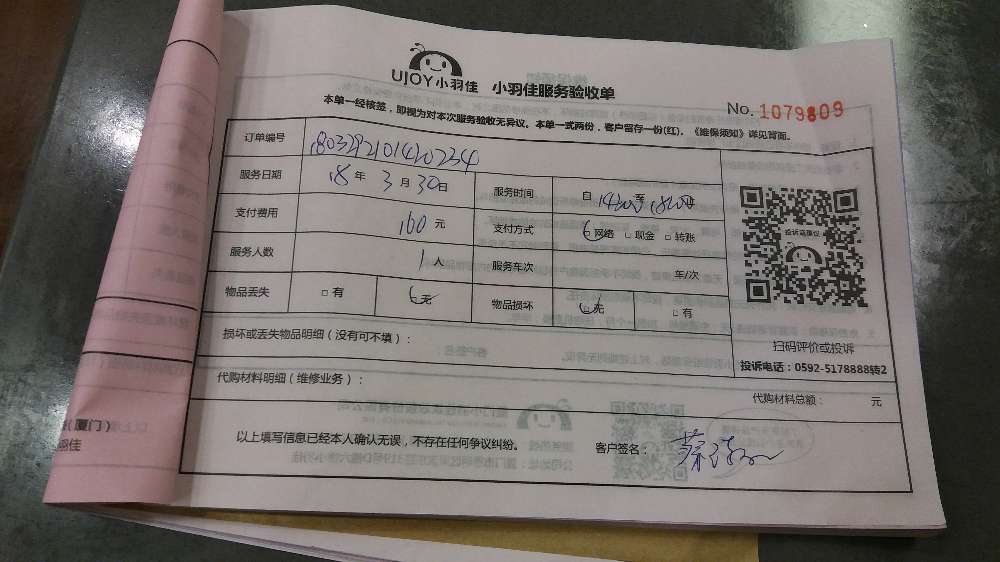 UJOY小羽佳 小羽佳服务验收单
No. 1079809
本单一经核签，即视为对本次服务验收无异议。本单一式两份，客户留存一份(红)，《维保须知》详见背面。
订单编号 1803292101420234
服务日期 18 年 3 月 30 日 服务时间 自 14:00 至 18:00 止
支付费用 160 元 支付方式 网络 □ 现金 □ 转账
服务人数 1 人 服务车次 年/次
物品丢失 □ 有 无 物品损坏 □ 无 □ 有
损坏或丢失物品明细（没有可不填）：
投诉或建议
扫码评价或投诉
投诉电话：0592-5178888转2
代购材料明细（维修业务）： 代购材料总额： 元
以上填写信息已经本人确认无误，不存在任何争议纠纷。 客户签名：
(厦门)
羽佳